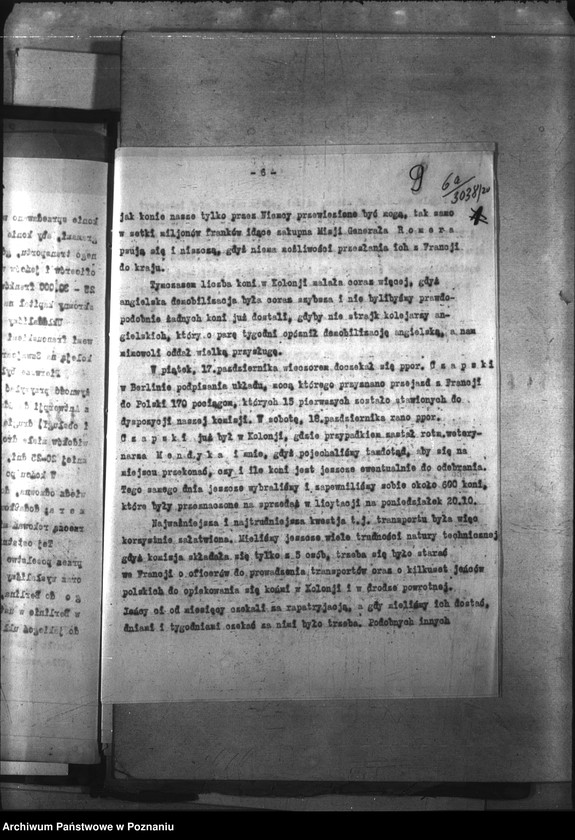 - 6 -
6a
3038/20
jak konie nasze tylko przez Niemcy przewiezione być mogą, tak samo
w setki miljonów franków idące zakupna Misji Generała R o m e r a
psują się i niszczą, gdyż niema możliwości przesłania ich z Francji
do kraju.
Tymczasem liczba koni w Kolonji malała coraz więcej, gdyż
angielska demobilizacja była coraz szybsza i nie bylibyśmy prawdo-
podobnie żadnych koni już dostali, gdyby nie strajk kolejarzy an-
gielskich, który o parę tygodni opóźnił demobilizację angielską, a nam
mimowoli oddał wielką przysługę.
W piątek, 17.października wieczorem doczekał się ppor. C z a p s k i
w Berlinie podpisania układu, mocą którego przyznano przejazd z Francji
do Polski 170 pociągom, których 15 pierwszych zostało stawionych do
dyspozycji naszej komisji. W sobotę, 18.października rano ppor.
C z a p s k i już był w Kolonji, gdzie przypadkiem zastał rotm.wetery-
narza M e n d y k a i mnie, gdyż pojechaliśmy tamdotąd, aby się na
miejscu przekonać, czy i ile koni jest jeszcze ewentualnie do odebrania.
Tego samego dnia jeszcze wybraliśmy i zapewniliśmy sobie około 600 koni,
które były przeznaczone na sprzedaż w licytacji na poniedziałek 20.10.
Najważniejsza i najtrudniejsza kwestja t.j. transportu była więc
korzystnie załatwiona. Mieliśmy jeszcze wiele trudności natury technicznej
gdyż komisja składała się tylko z 5 osób, trzeba się było starać
we Francji o oficerów do prowadzenia transportów oraz o kilkuset jeńców
polskich do opiekowania się końmi w Kolonji i w drodze powrotnej.
Jeńcy ci od miesięcy czekali za rapatryjacją, a gdy mieliśmy ich dostać,
dniami i tygodniami czekać za nimi było trzeba. Podobnych innych
Archiwum Państwowe w Poznaniu